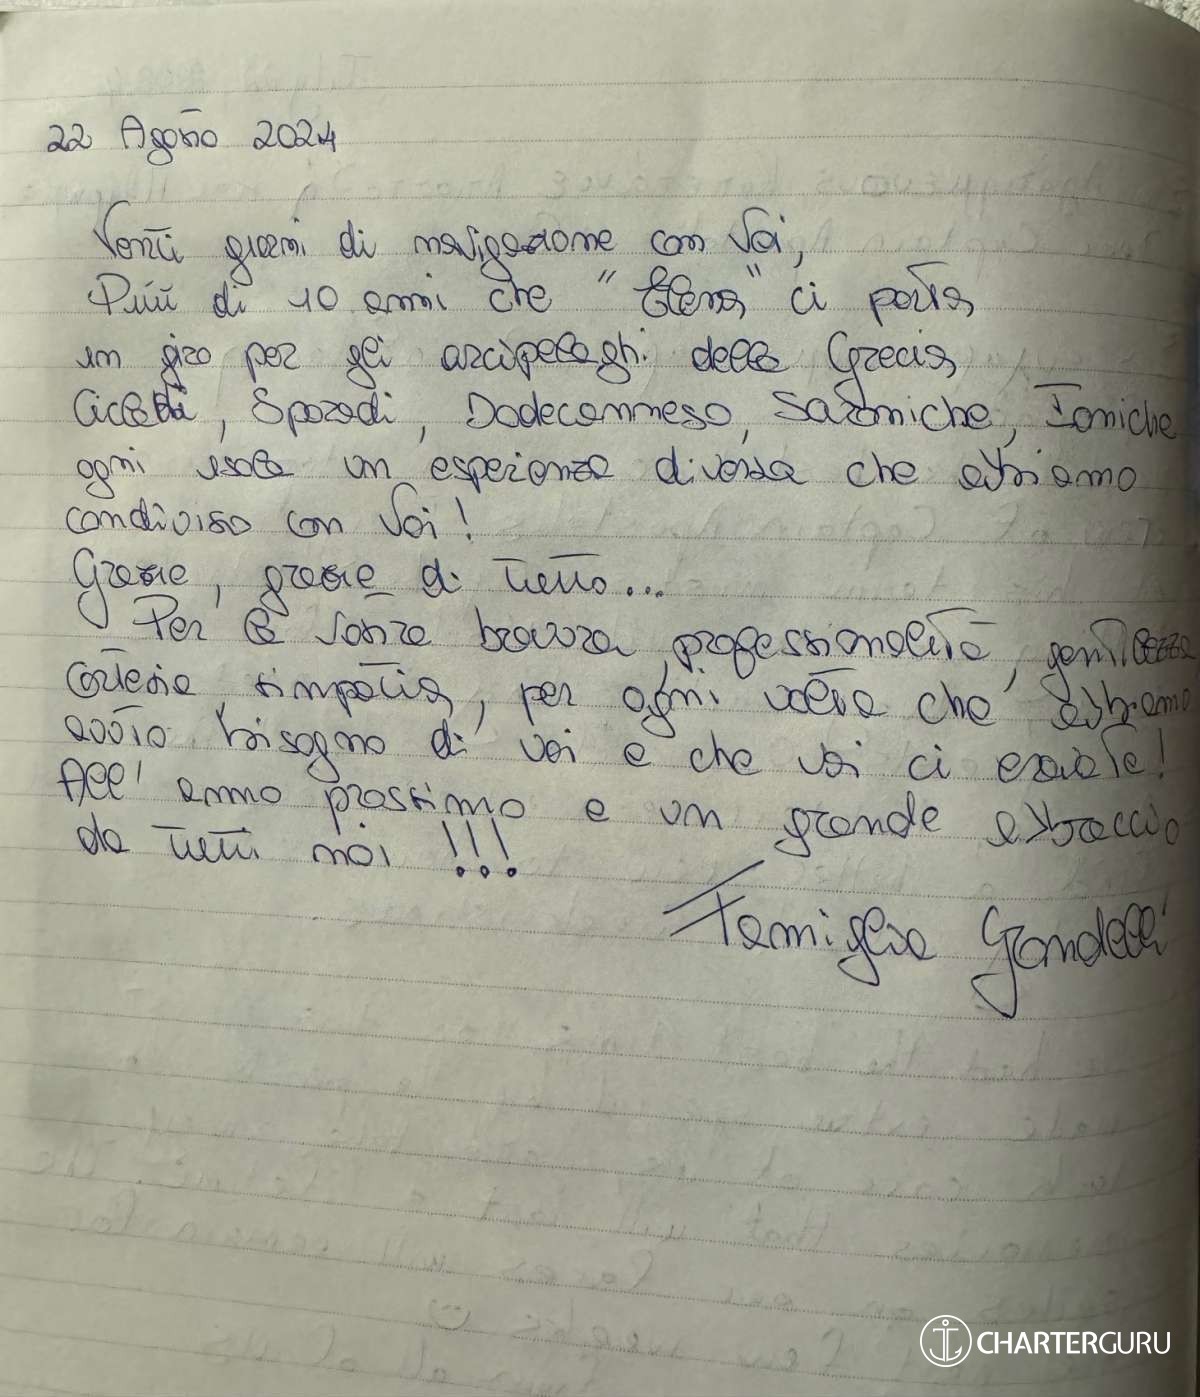 22 Agosto 2024
Venti giorni di navigazione con Voi,
Più di 10 anni che "Elena" ci porta
in giro per gli arcipelaghi della Grecia
Cicladi, Sporadi, Dodecanneso, Saroniche, Ioniche
ogni isola un esperienza diversa che abbiamo
condiviso con Voi!
Grazie, grazie di tutto...
Per la vostra bravura, professionalità, gentilezza
cortesia, simpatia, per ogni volta che abbiamo
avuto bisogno di voi e che voi ci
All'anno prossimo e un grande abbraccio
da tutti noi !!!
Famiglia Gandelli
CHARTERGURU